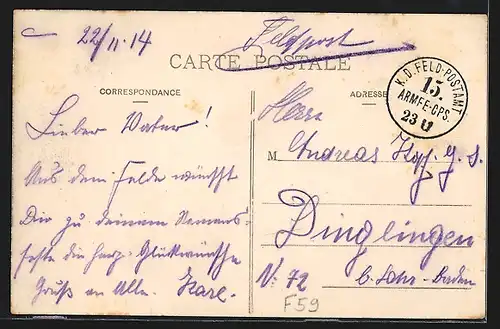 22/11.14
Feldpost
CARTE POSTALE
CORRESPONDANCE
ADRESSE
K.D. FELD-POSTAMT
15.
ARMEE-CPS.
23 11
Lieber Vater!
Aus dem Felde wünscht
Dir zu deinem Namens-
feste die herz. Glückwünsche
Gruß an Alle. Karl.
Herrn
M Andreas
Dinglingen
b. Lahr-Baden
No. 72
F59